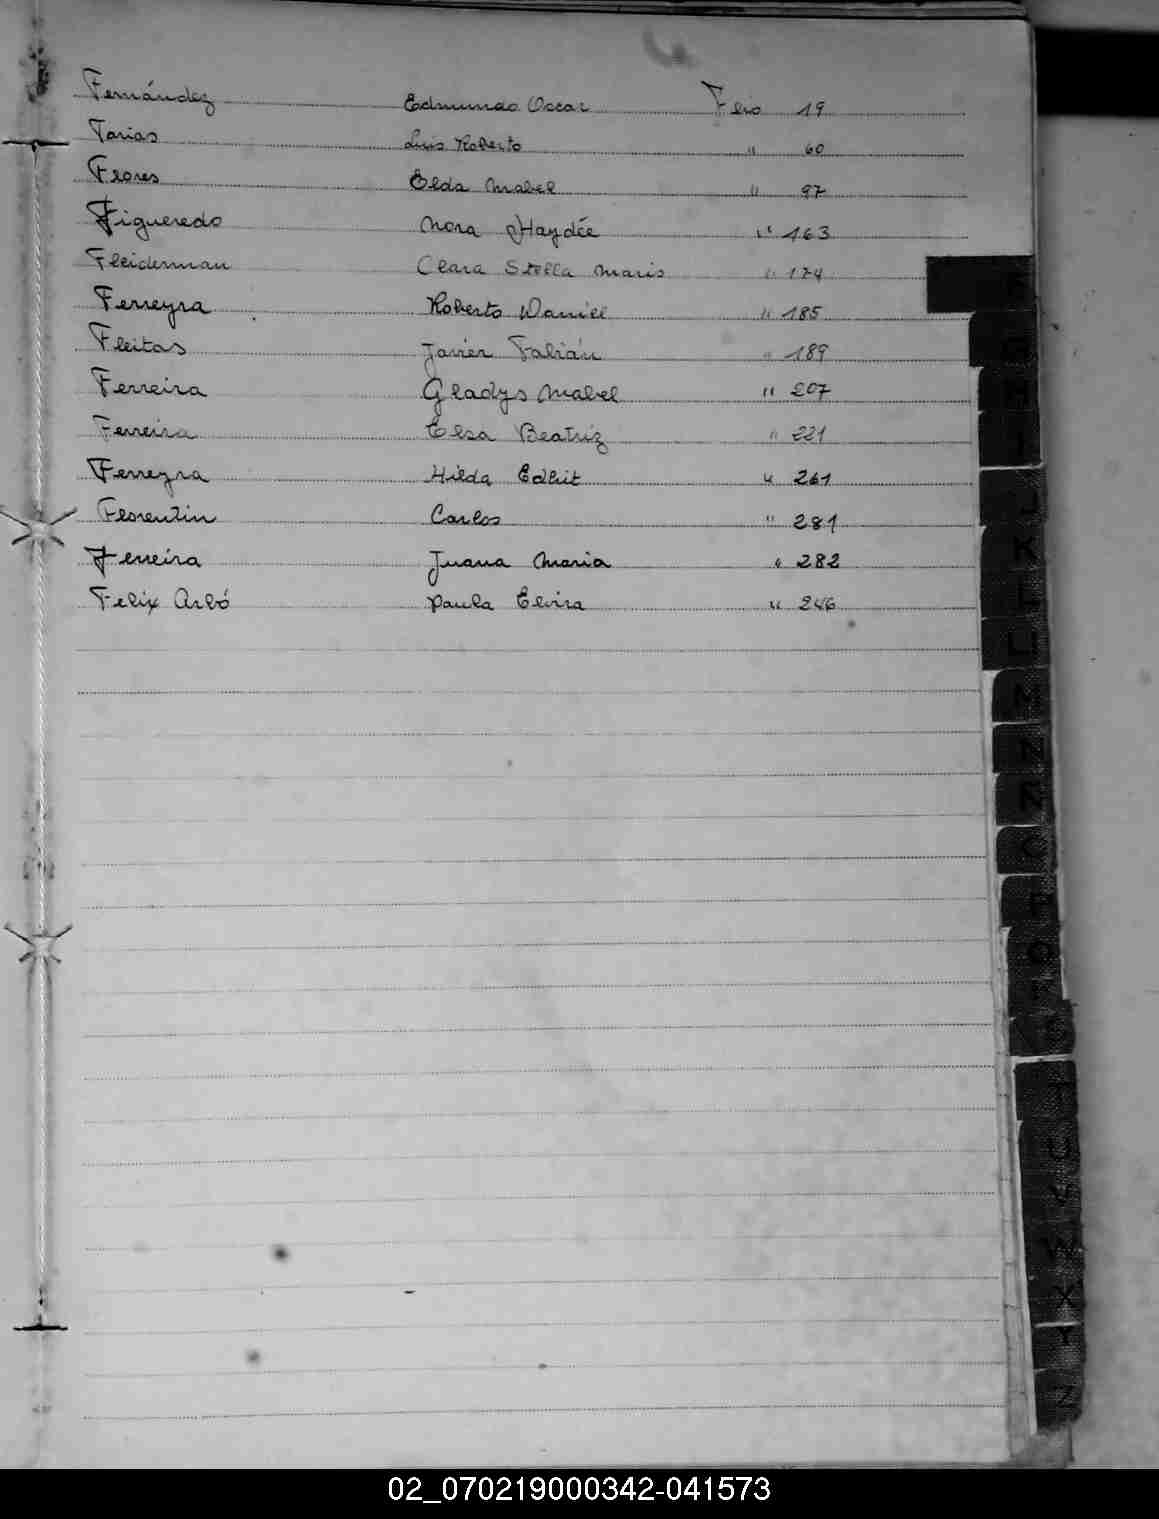 Fernández Edmundo Oscar Flio 19
Farias Luis Roberto " 60
Flores Elda Mabel " 97
Figueredo Nora Haydée " 163
Fleiderman Clara Stella Maris " 174
Ferreyra Roberto Daniel " 185
Fleitas Javier Fabián " 189
Ferreira Gladys Mabel " 207
Ferreira Elsa Beatriz " 221
Ferreyra Hilda Edhit " 261
Florentin Carlos " 281
Ferreira Juana Maria " 282
Felix Arbó Paula Elvira " 246
02_070219000342-041573